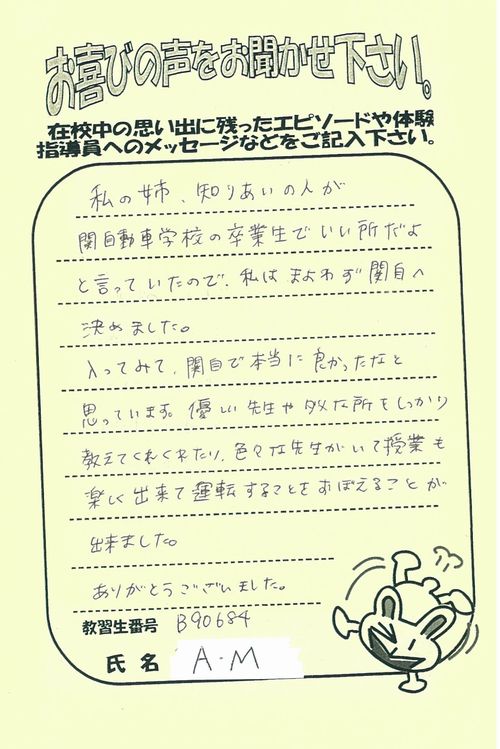 お喜びの声をお聞かせ下さい。
在校中の思い出に残ったエピソードや体験
指導員へのメッセージなどをご記入下さい。
私の姉、知りあいの人が
関自動車学校の卒業生でいい所だよ
と言っていたので、私はまよわず関自へ
決めました。
入ってみて、関自で本当に良かったなと
思っています。優しい先生やダメな所をしっかり
教えてくれくれたり、色々な先生がいて授業も
楽しく出来て運転することをおぼえることが
出来ました。
ありがとうございました。
教習生番号 B90684
氏名 A・M